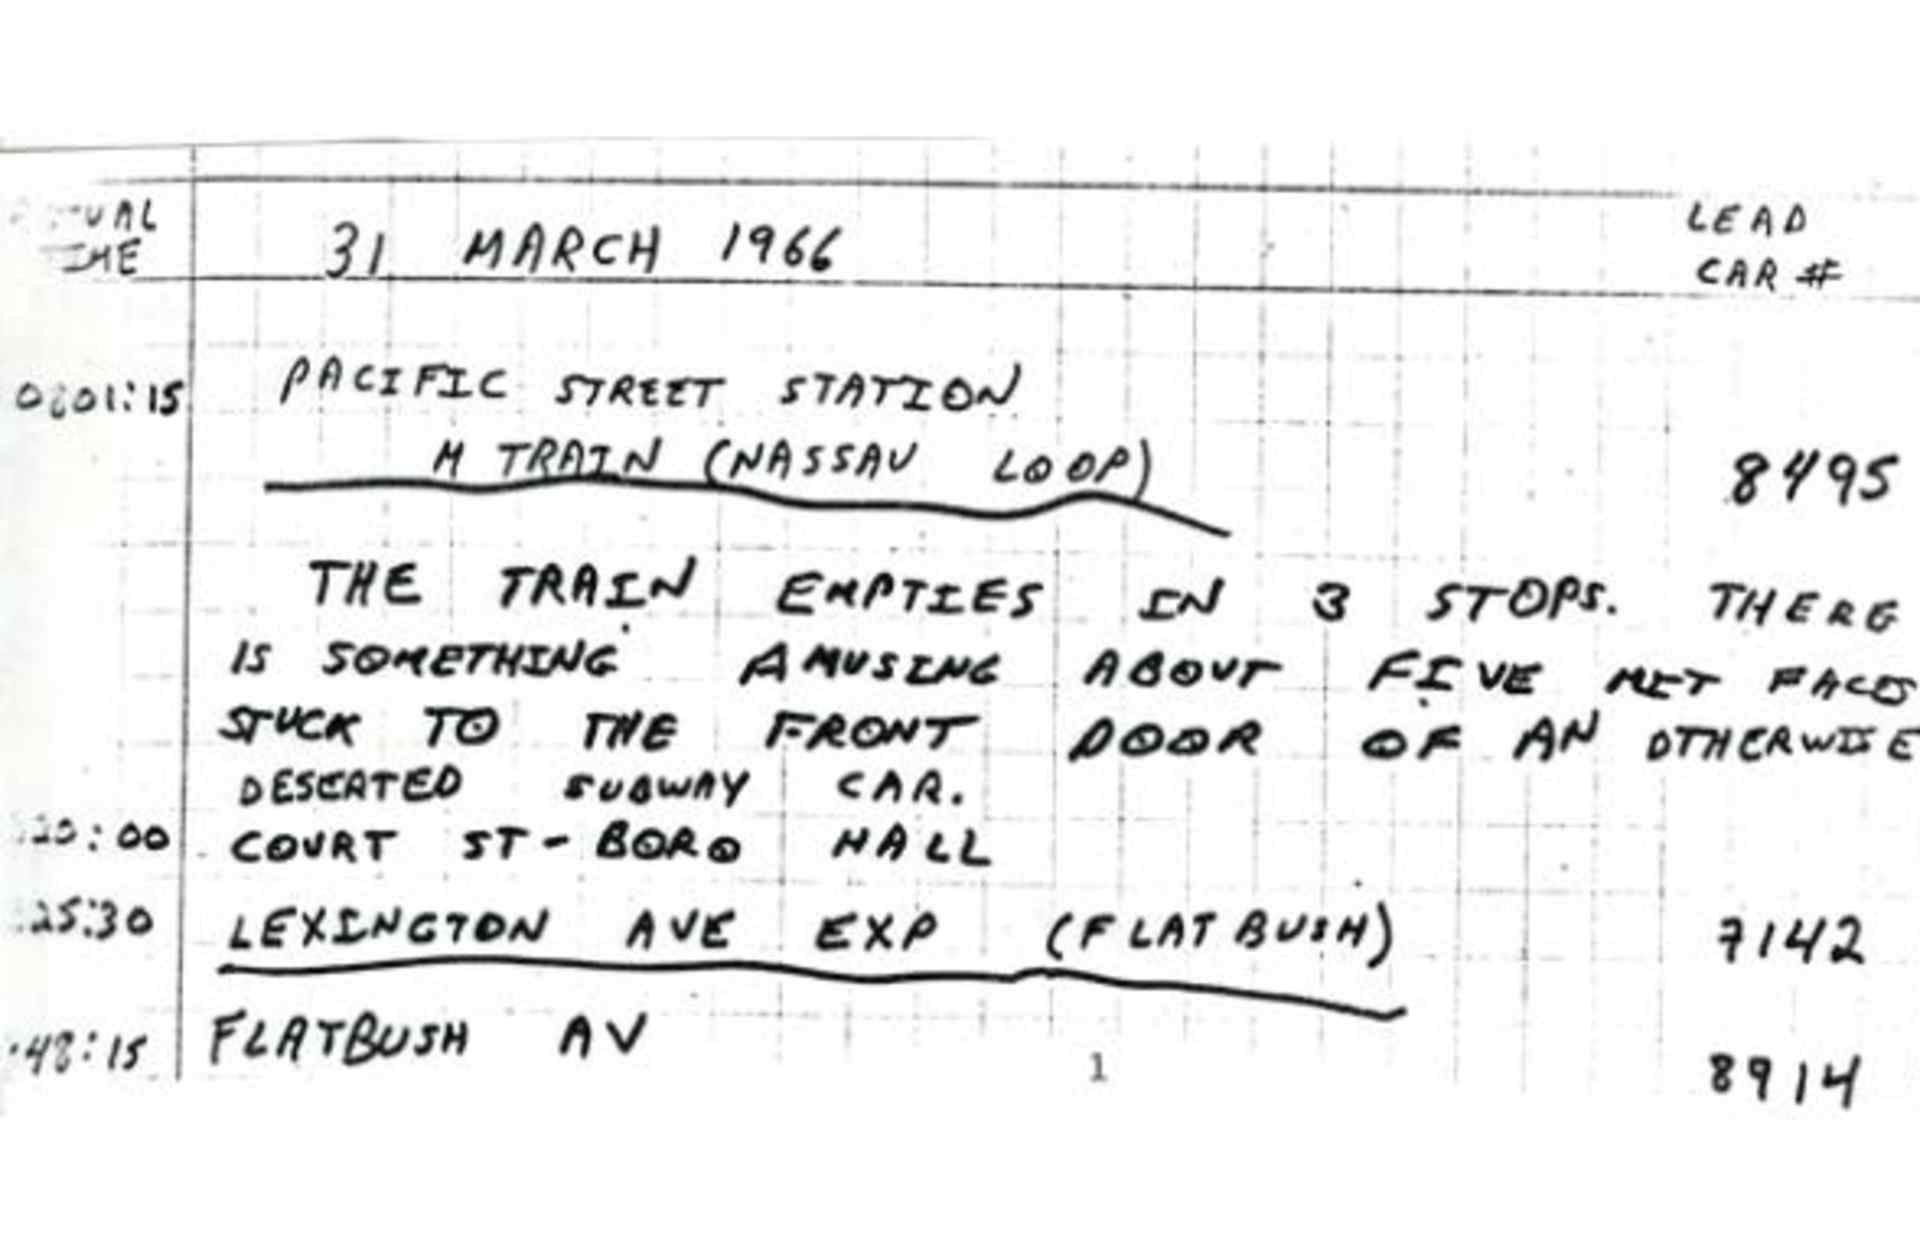 31 MARCH 1966
LEAD
CAR #
PACIFIC STREET STATION
M TRAIN (NASSAU LOOP)
8495
THE TRAIN EMPTIES IN 3 STOPS. THERE
IS SOMETHING AMUSING ABOUT FIVE FACES
STUCK TO THE FRONT DOOR OF AN OTHERWISE
DESERTED SUBWAY CAR.
20:00 COURT ST - BORO HALL
25:30 LEXINGTON AVE EXP (FLATBUSH) 7142
48:15 FLATBUSH AV 8914
1